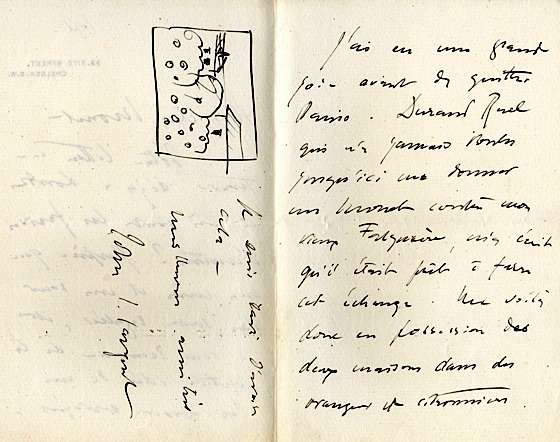 J'ai eu une grande
joie avant de quitter
Paris. Durand Ruel
qui n'a jamais voulu
jusqu'ici me donner
un Monet contre mon
Falguière, m'a écrit
qu'il était prêt à faire
cet échange. Me voilà
donc en possession des
deux maisons dans des
orangers et citronniers.
Je suis ravi d'avoir
cela —
amitiés
John S. Sargent
33, TITE STREET,
CHELSEA, S.W.